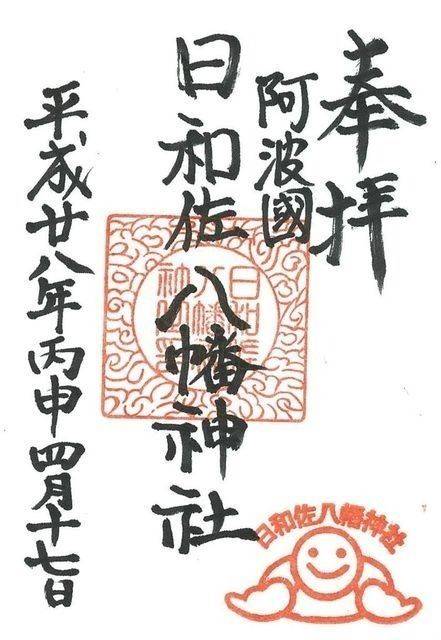 奉拝
阿波國
日和佐八幡神社
平成廿八年丙申四月十七日
日和佐八幡神社